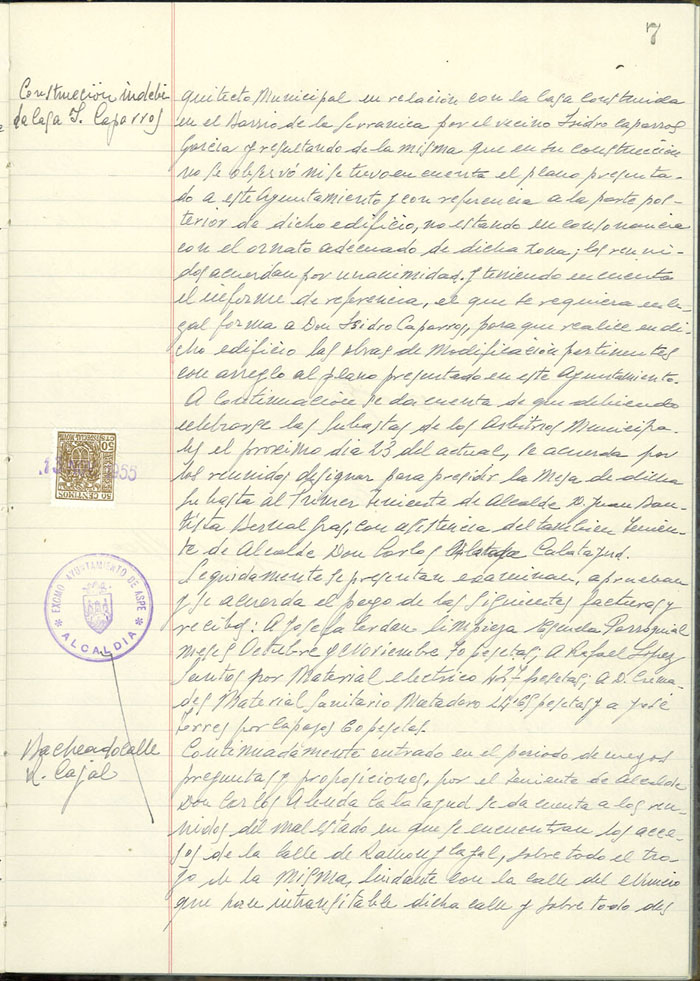 7
Construcción indebi
da casa I. Caparros
quitecto Municipal en relación con la casa construida
en el Barrio de la Serranica por el vecino Isidro Caparros
Garcia y resultando de la misma que en su construcción
no se observó ni se tuvo en cuenta el plano presenta-
do a este Ayuntamiento y con referencia a la parte pos-
terior de dicho edificio, no estando en consonancia
con el ornato adecuado de dicha zona; los reuni-
dos acuerdan por unanimidad y teniendo en cuenta
el informe de referencia, el que se requiera en le-
gal forma a Don Isidro Caparros, para que realice en di-
cho edificio las obras de modificación pertinentes
con arreglo al plano presentado en este Ayuntamiento.
A continuación se da cuenta de que debiendo
celebrarse las subastas de los Arbitrios Municipa-
les el próximo dia 23 del actual, se acuerda por
los reunidos designar para presidir la Mesa de dicha
subasta al Primer Teniente de Alcalde D. Juan Bau-
tista Bernal Gras, con asistencia del tambien Tenien-
te de Alcalde Don Carlos Calatayud.
Seguidamente se presentan examinan, aprueban
y se acuerda el pago de las siguientes facturas y
recibos: A Josefa Cerdan limpieza Escuela Parroquial
meses Octubre y Noviembre 70 pesetas; A Rafael López
Santos por Material electrico 427 pesetas; A D.
des Material Sanitario Matadero pesetas y a José
Torres por capazos 60 pesetas.
50 CENTIMOS
1955
EXCMO. AYUNTAMIENTO DE ASPE
ALCALDIA
Bacheado calle
R. Cajal
Continuadamente entrado en el periodo de ruegos
preguntas y proposiciones, por el Teniente de Alcalde
Don Carlos Calatayud se da cuenta a los reu-
nidos del mal estado en que se encuentran los acce-
sos de la calle de Ramon y Cajal, sobre todo el tro-
zo de la misma, lindante con la calle del
que hacen intransitable dicha calle y sobre todo des